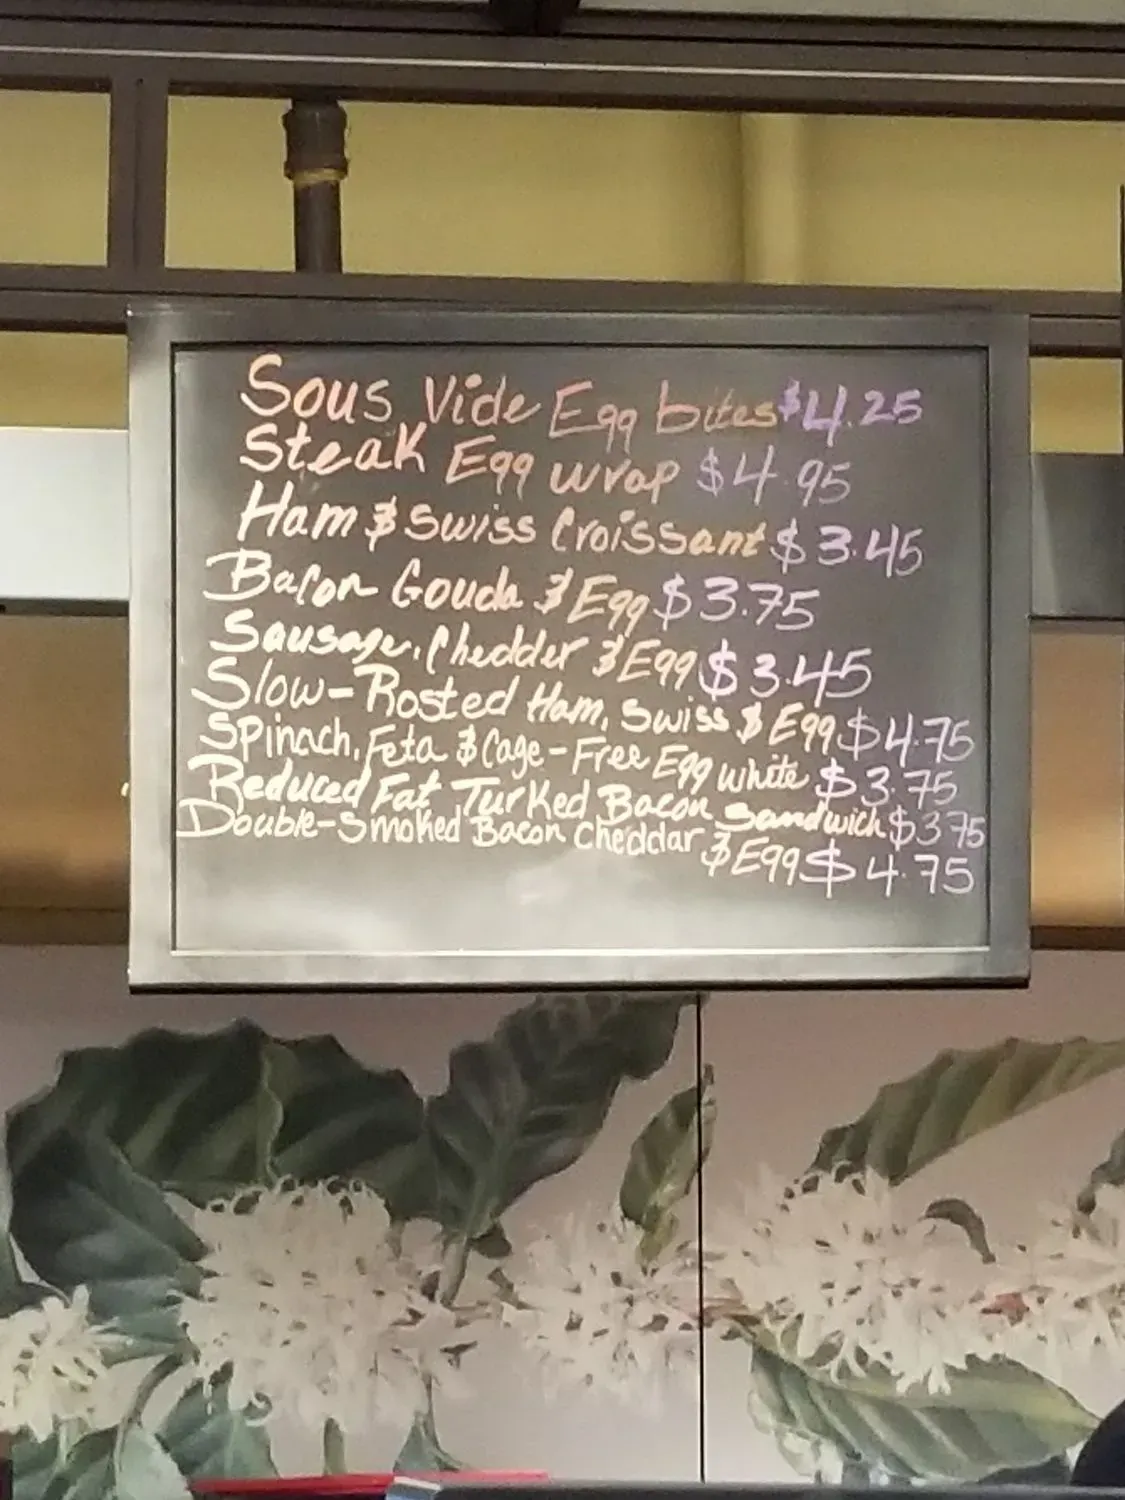 Sous Vide Egg bites $4.25
Steak Egg wrap $4.95
Ham & Swiss Croissant $3.45
Bacon Gouda & Egg $3.75
Sausage, Chedder & Egg $3.45
Slow-Rosted Ham, Swiss & Egg $4.75
Spinach, Feta & Cage-Free Egg white $3.75
Reduced Fat Turked Bacon Sandwich $3.75
Double-Smoked Bacon Cheddar & Egg $4.75